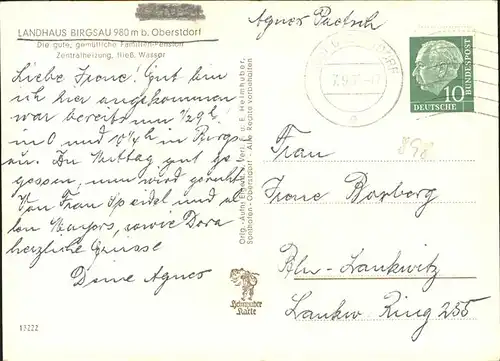 LANDHAUS BIRGSAU 980 m b. Oberstdorf
Die gute, gemütliche Familien-Pension
Zentralheizung, fließ. Wasser
Liebe Irene! Gut bin
ich hier angekommen
war bereits um 1/2 9 h
in O und 10 1/4 h in Birgs-
au. Zu Mittag gut ge-
gessen, nun wird geruht.
Von Frau Speidel und al-
len Mayors, sowie Dora
herzliche Grüsse
Deine Agnes
13222
Orig.-Aufn. Eigent. Verl. u. E. Heimhuber,
Sonthofen-Oberstdorf - Alle Rechte vorbehalten
Heimhuber
Karte
Agnes Paetsch
DEUTSCHE
BUNDESPOST
10
898
Frau
Irene Boxberg
Bln-Lankwitz
Lankw Ring 255